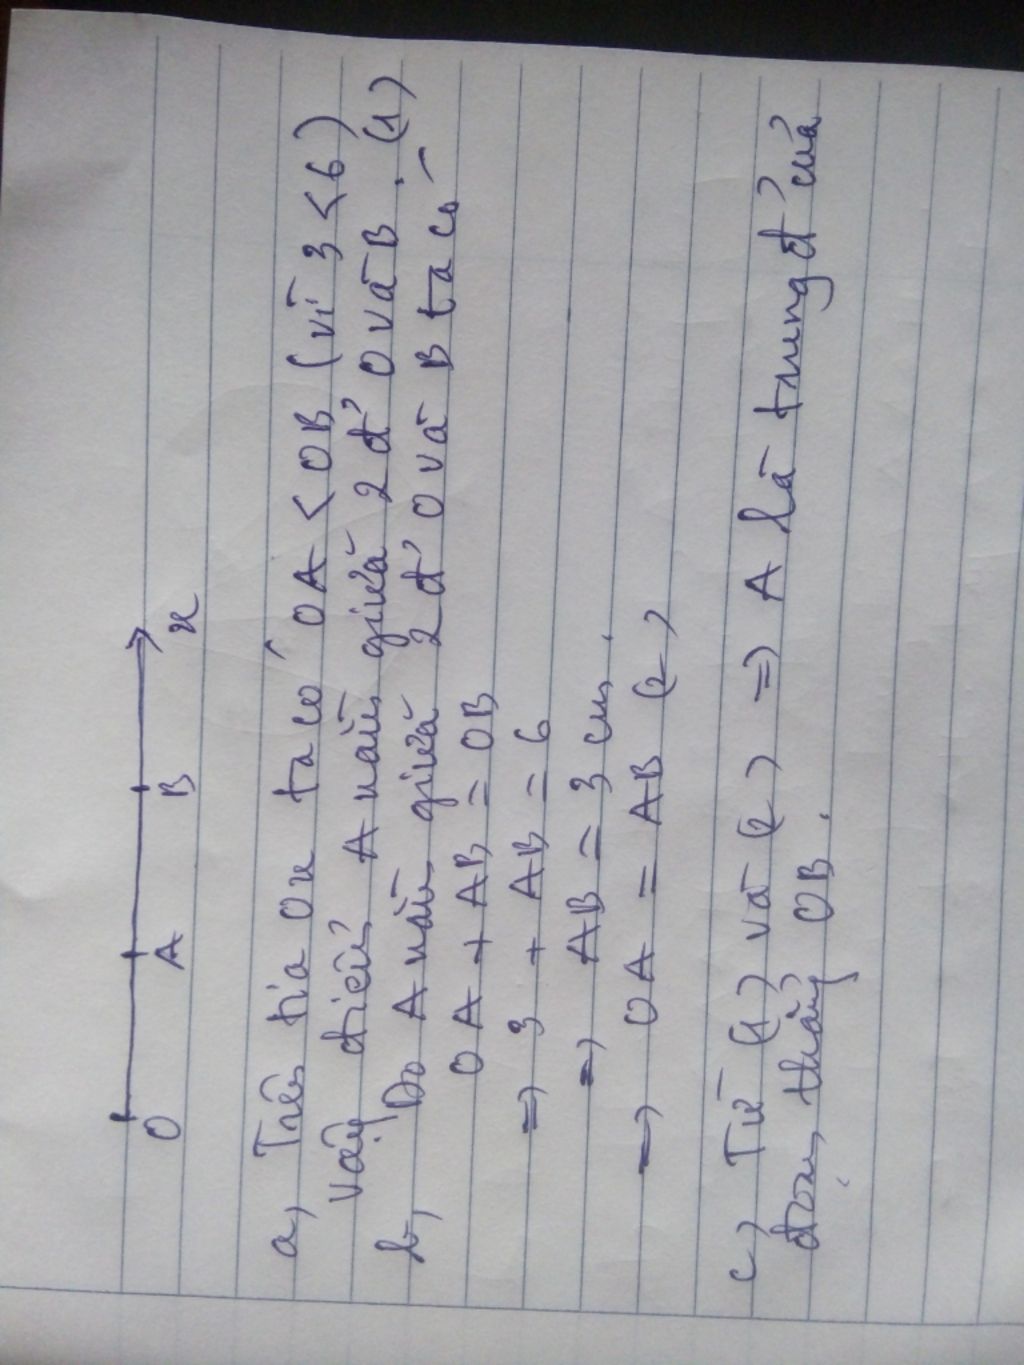 O A B x
a, Trên tia Ox ta có OA < OB (vì 3 < 6)
Vậy điểm A nằm giữa 2 đ' O và B. (1)
b, Do A nằm giữa 2 đ' O và B ta có
OA + AB = OB
=> 3 + AB = 6
=> AB = 3 cm.
=> OA = AB (2)
c) Từ (1) và (2) => A là trung đ' của
đoạn thẳng OB.